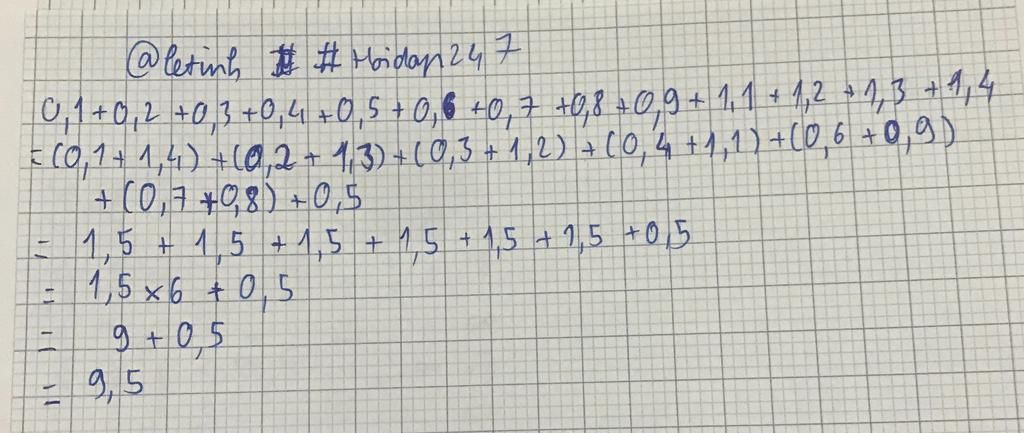 @letinh # #Hoidap247
0,1 + 0,2 + 0,3 + 0,4 + 0,5 + 0,6 + 0,7 + 0,8 + 0,9 + 1,1 + 1,2 + 1,3 + 1,4
= (0,1 + 1,4) + (0,2 + 1,3) + (0,3 + 1,2) + (0,4 + 1,1) + (0,6 + 0,9)
+ (0,7 + 0,8) + 0,5
= 1,5 + 1,5 + 1,5 + 1,5 + 1,5 + 1,5 + 0,5
= 1,5 × 6 + 0,5
= 9 + 0,5
= 9,5